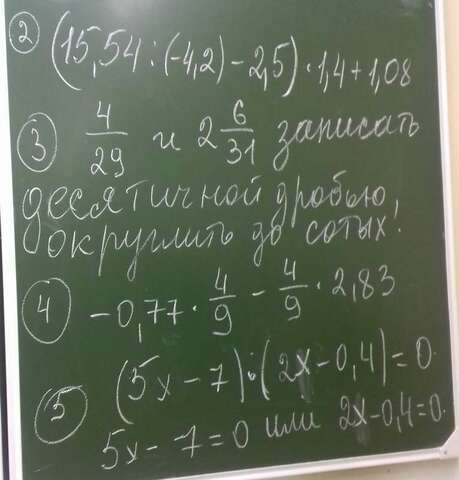 ② (15,54 : (-4,2) - 2,5) · 1,4 + 1,08
③ 4/29 и 2 6/31 записать
десятичной дробью,
округлить до сотых!
④ -0,77 · 4/9 - 4/9 · 2,83
⑤ (5x - 7) · (2x - 0,4) = 0
5x - 7 = 0 или 2x - 0,4 = 0